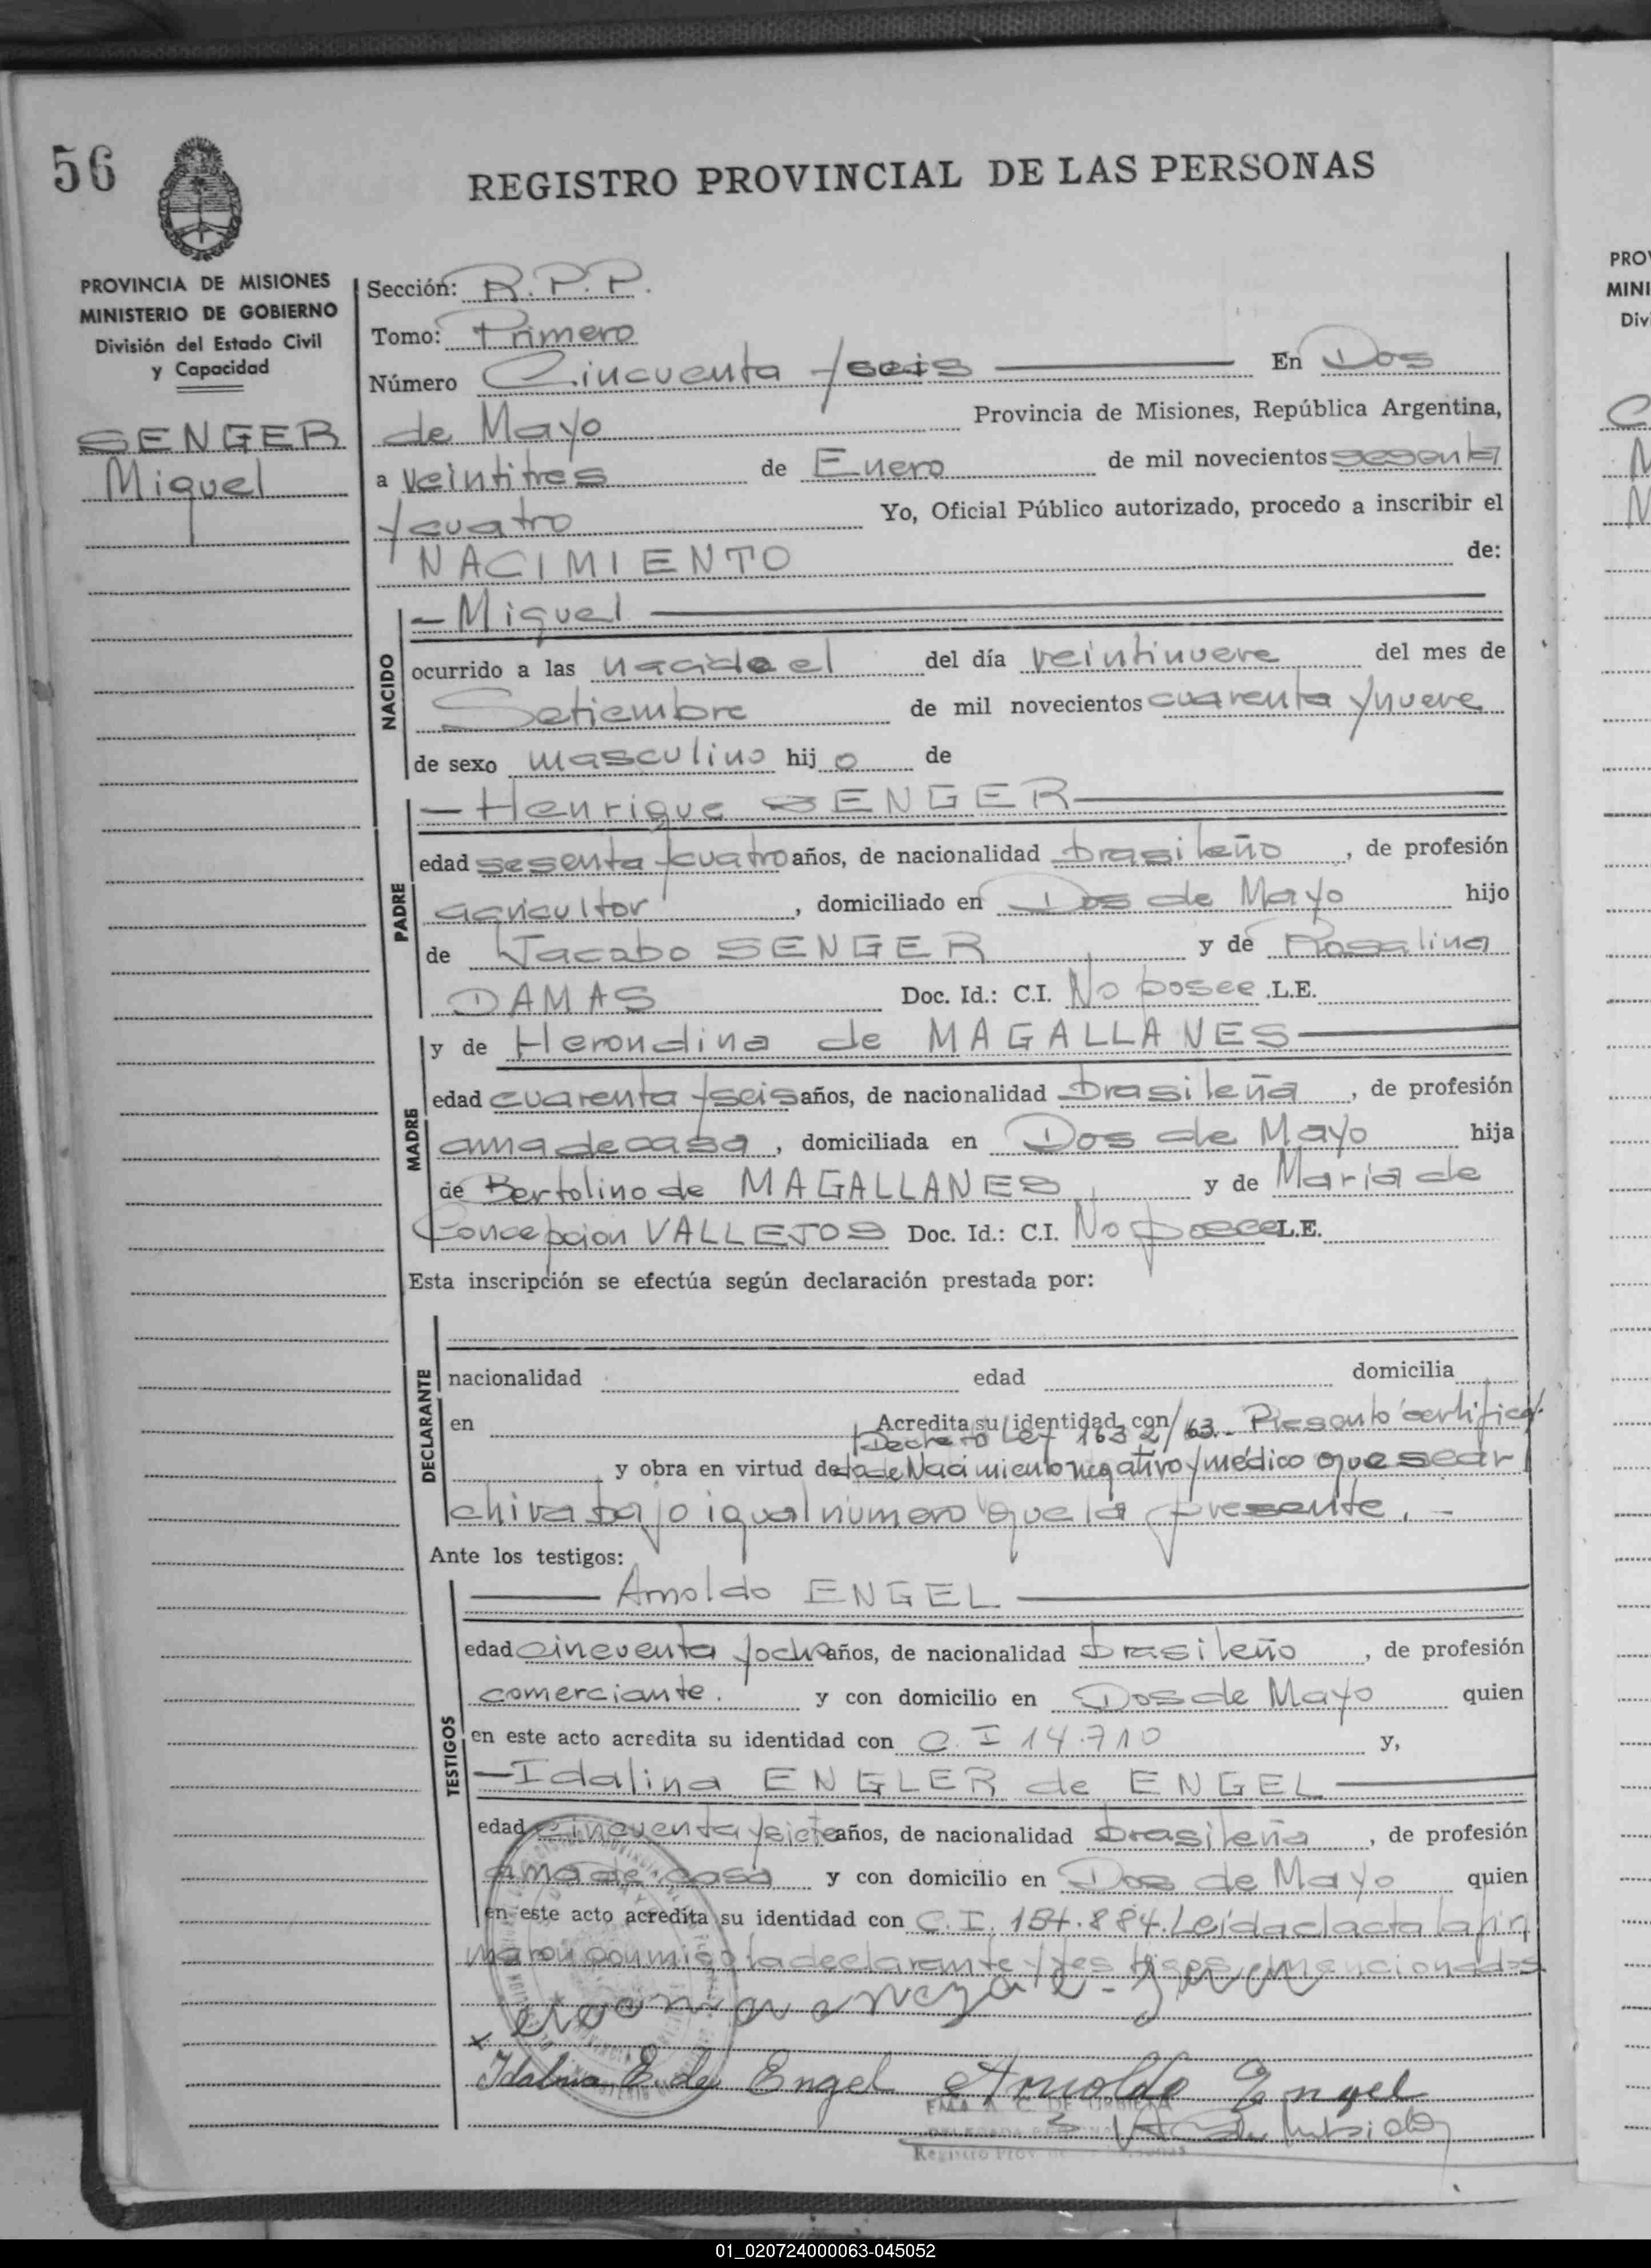 56
REGISTRO PROVINCIAL DE LAS PERSONAS
PROVINCIA DE MISIONES
MINISTERIO DE GOBIERNO
División del Estado Civil
y Capacidad
SENGER
Miguel
Sección: R.P.P.
Tomo: Primero
Número Cincuenta y seis En Dos
de Mayo Provincia de Misiones, República Argentina,
a veintitres de Enero de mil novecientos sesenta
y cuatro Yo, Oficial Público autorizado, procedo a inscribir el
NACIMIENTO de:
NACIDO
- Miguel
ocurrido a las nacido el del día veintinueve del mes de
Setiembre de mil novecientos cuarenta y nueve
de sexo masculino hij o de
PADRE
- Henrique SENGER
edad sesenta y cuatro años, de nacionalidad brasileño, de profesión
agricultor, domiciliado en Dos de Mayo hijo
de Jacabo SENGER y de Rosalina
DAMAS Doc. Id.: C.I. No posee .L.E.
MADRE
y de Herondina de MAGALLANES
edad cuarenta y seis años, de nacionalidad brasileña, de profesión
ama de casa, domiciliada en Dos de Mayo hija
de Bertolino de MAGALLANES y de María de
Concepcion VALLEJOS Doc. Id.: C.I. No posee L.E.
Esta inscripción se efectúa según declaración prestada por:
DECLARANTE
nacionalidad edad domicilia
en Acredita su identidad con
Decreto Ley 1632/63.- Presento certifica
y obra en virtud de to de Nacimiento negativo y médico que se ar
chiva bajo igual número que la presente.-
Ante los testigos:
TESTIGOS
Arnoldo ENGEL
edad cincuenta y ocho años, de nacionalidad brasileño, de profesión
comerciante. y con domicilio en Dos de Mayo quien
en este acto acredita su identidad con C.I 14.710 y,
- Idalina ENGLER de ENGEL
edad cincuenta y siete años, de nacionalidad brasileña, de profesión
ama de casa y con domicilio en Dos de Mayo quien
en este acto acredita su identidad con C.I. 184.884. Leída el acta la fir
maron conmigo la declarante y testigos mencionados
x
Idalina E. de Engel Arnoldo Engel
01_020724000063-045052